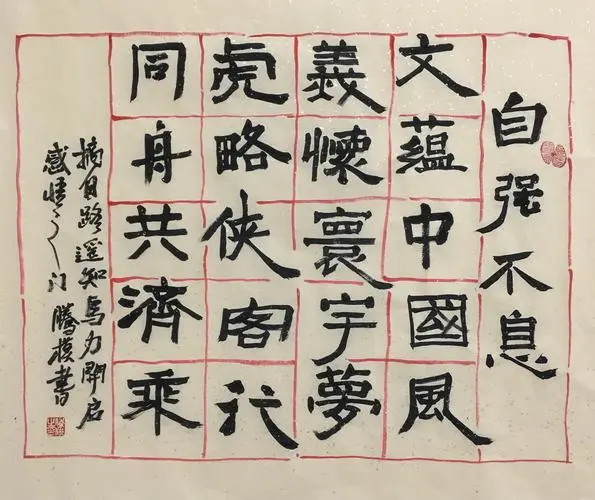 自强不息
文蘊中國風
義懷寰宇夢
虎略侠閣行
同舟共濟乘
摘自路遥知馬力開启
感悟之门 腾模書